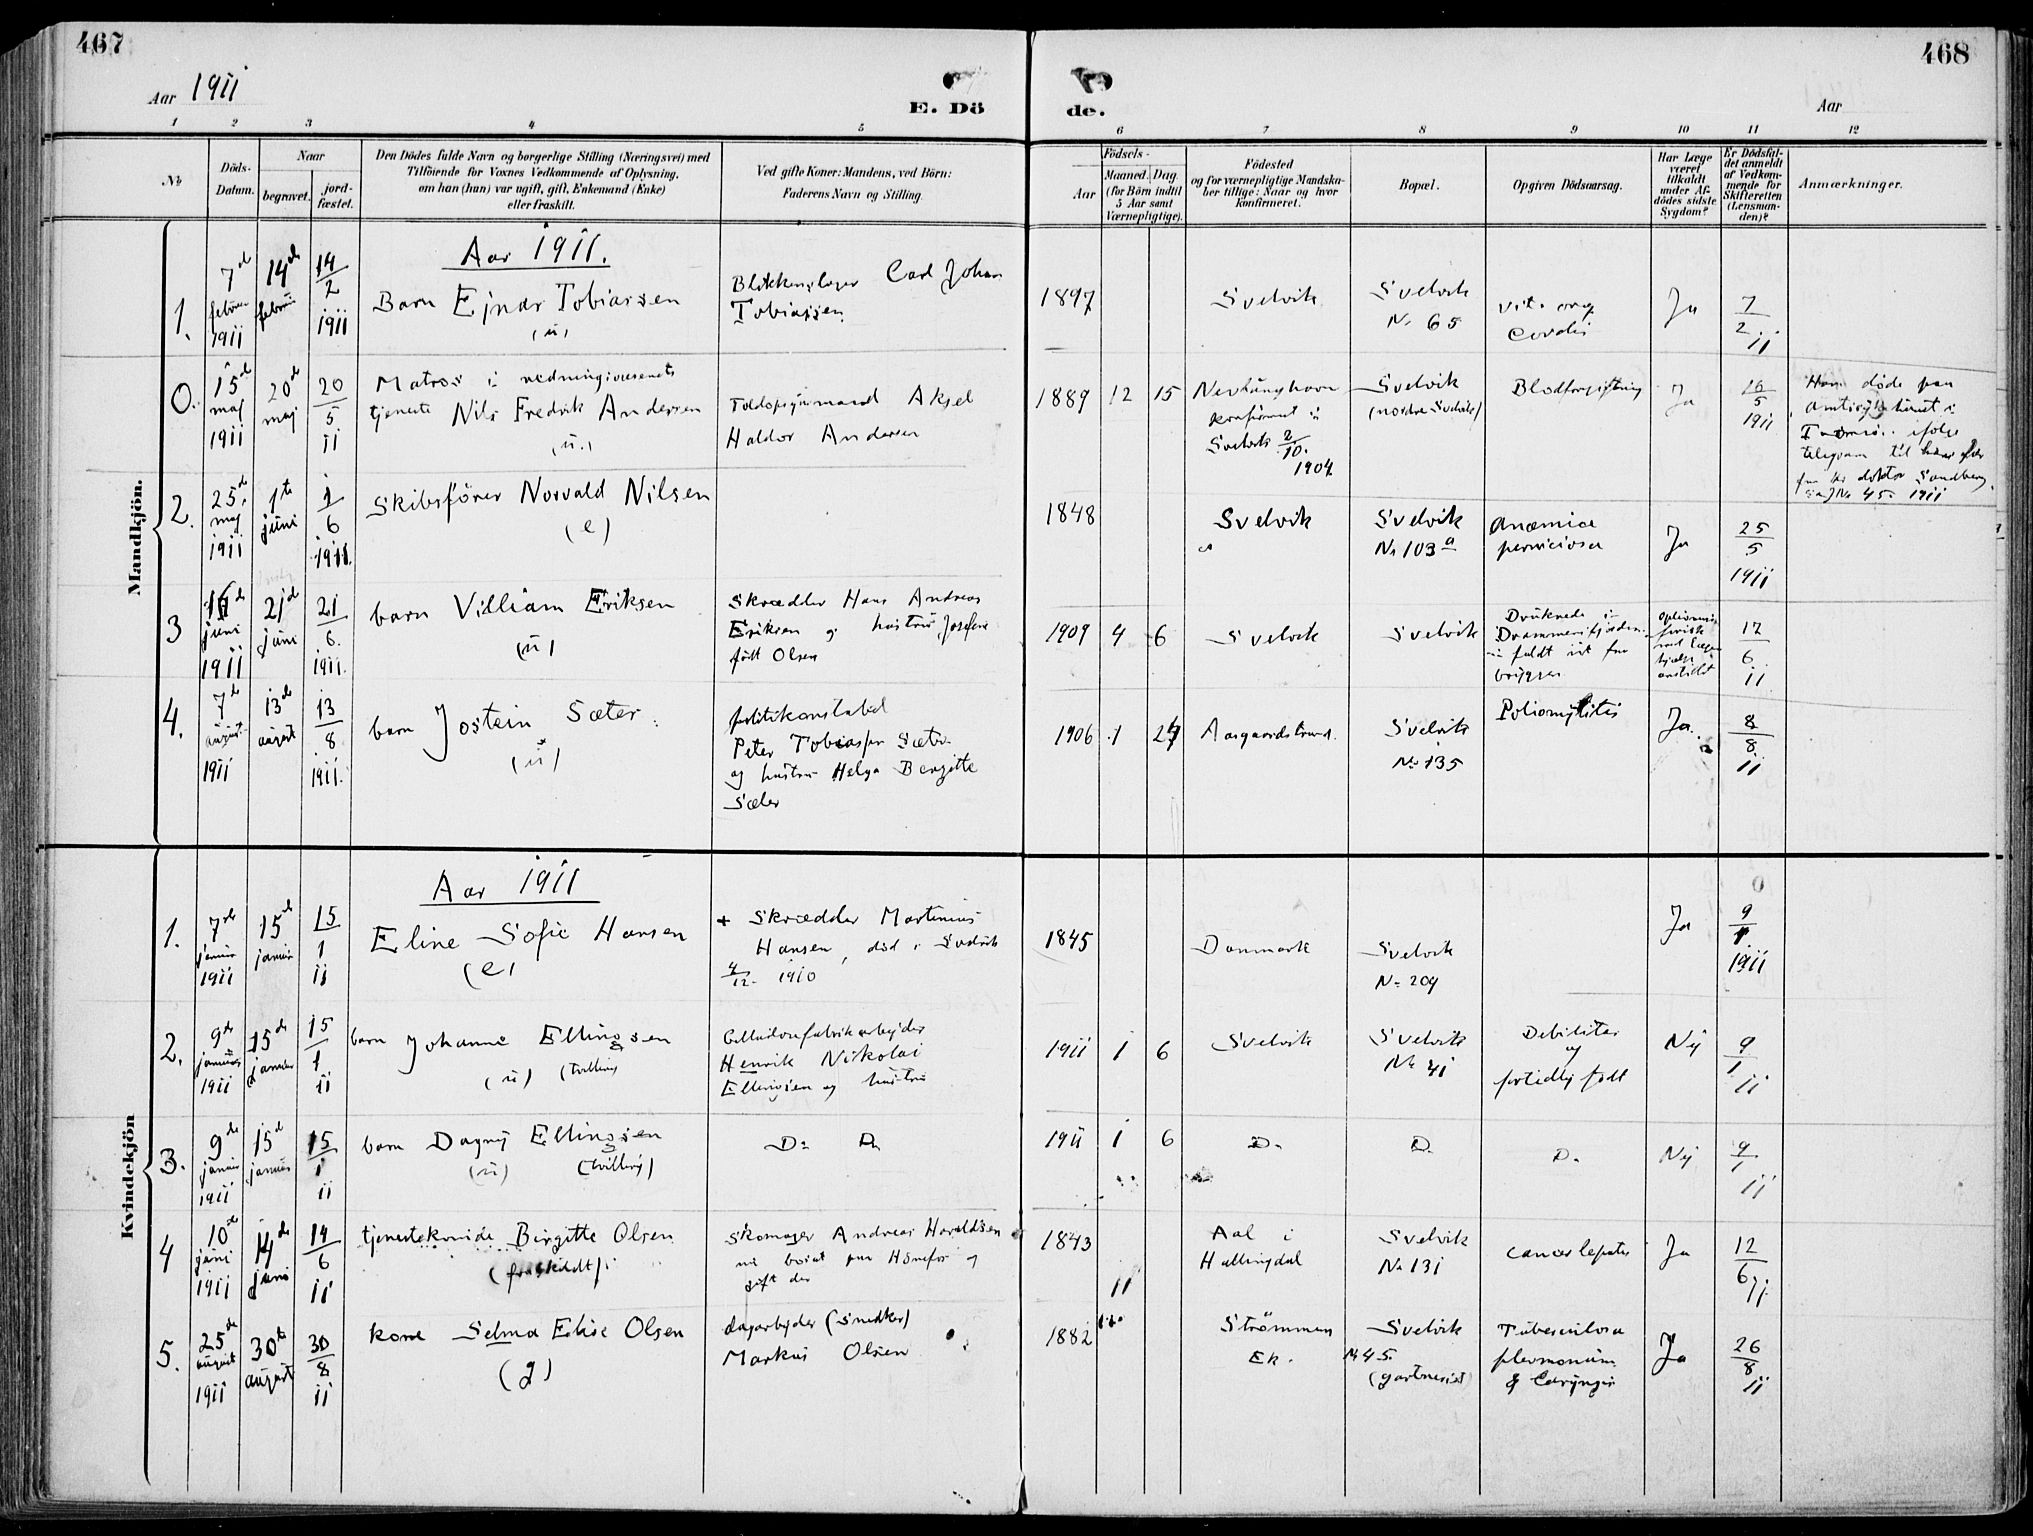 467
468
Aar 1911
E. Dö
de.
Aar
1 2 3 4 5 6 7 8 9 10 11 12
No.
Döds-
Datum.
Naar
begravet.
jord-
fæstet.
Den Dödes fulde Navn og borgerlige Stilling (Næringsvei) med
Tilföiende for Voxnes Vedkommende af Oplysning,
om han (hun) var ugift, gift, Enkemand (Enke)
eller fraskilt.
Ved gifte Koner: Mandens, ved Börn:
Faderens Navn og Stilling.
Födsels-
Aar
Maaned. Dag.
(for Börn indtil
5 Aar samt
Værnepligtige).
Födested
og for værnepligtige Mandska-
ber tillige: Naar og hvor
konfirmeret.
Bopæl.
Opgiven Dödsaarsag.
Har Læge
været
tilkaldt
under Af-
dödes sidste
Sygdom?
Er Dödsfal-
det anmeldt
af Vedkom-
mende for
Skifteretten
(Lensman-
den)?
Anmærkninger.
Mandkjön.
Aar 1911.
1.
7de
1911
14de
14
2
1911
Barn Ejnar Tobiassen
(u)
Carl Johan
Tobiassen
1897
Svelvik
Svelvik
No 65
Cordis
Ja
7
2 11
0.
15de
maj
1911
20de
maj
20
5
11
Matros i
tjeneste Nils Fredrik Andersen
(u.)
Aksel
Haldor Andersen
1889
12
15
konfirmert i
Svelvik 2
10.
1904
Svelvik
(nordre Svelvik)
Blodforgiftning
Ja
16
5
1911
Han døde paa
ifølge
telegram til
doktor Sandberg
No 45. 1911
2.
25de
maj
1911
1ste
juni
1
6
1911.
Skibsförer Norvald Nilsen
(e)
1848
Svelvik
Svelvik
No 103 a
Anæmica
perniciosa
Ja
25
5
1911
3
juni
1911
21de
juni
21
6.
1911.
barn Villiam Eriksen
(u)
Skrædder Hans Andreas
Eriksen og hustru Josefine
født Olsen
1909
4
6
Svelvik
Svelvik
Druknede i
Drammensfjorden
faldt ut fra
bryggen
17
6.
11
4.
7de
august
1911
13de
august
13
8
1911.
barn Jostein Sæter.
(u)
politikonstabel
Peter Tobiassen Sæter
og hustru Helga Bergitte
Sæter
1906
1
24
Aasgaardstrand.
Svelvik
No 135
Poliomylitis
Ja.
8
8.
11
Kvindekjön
Aar 1911
1.
7de
januar
1911
15de
januar
15
1
11
Eline Sofie Hansen
(e)
+ Skrædder Martinius
Hansen, død i Svelvik
12. 1910
1845
Danmark
Svelvik
No 209
Ja
9
1
1911
2.
9de
januar
1911
15de
januar
15
1
11
barn Johanne Ellingsen
(u) (tvilling)
Henrik Nikolai
Ellingsen og hustru
1911
1
6
Svelvik
Svelvik
No 41
Debilitas
og
fortidlig født
Nej
9
1
11
3.
9de
januar
1911
15de
januar
15
1
11
barn Dagny Ellingsen
(u) (tvilling)
Do Do
1911
1
6
Do
Do
Do
Nej
9
1
11
4
10de
juni
1911
14de
juni
14
6
11
tjenestekvinde Birgitte Olsen
(fraskildt)
Skomager Andreas Haraldsen
nu bosat paa Hönefos og
gift der
1843
Aal i
Hallingdal
Svelvik
No 131
cancer hepatis
Ja
12
6
11
5.
25de
august
1911
30te
august
30
8
11
kone Selma Elise Olsen
(g)
dagarbejder (snedker)
Markus Olsen
1882
Strömmen
Ek.
Svelvik
No 45.
Tuberculosa
pulmonum
& Laryngis
Ja
26
8
11